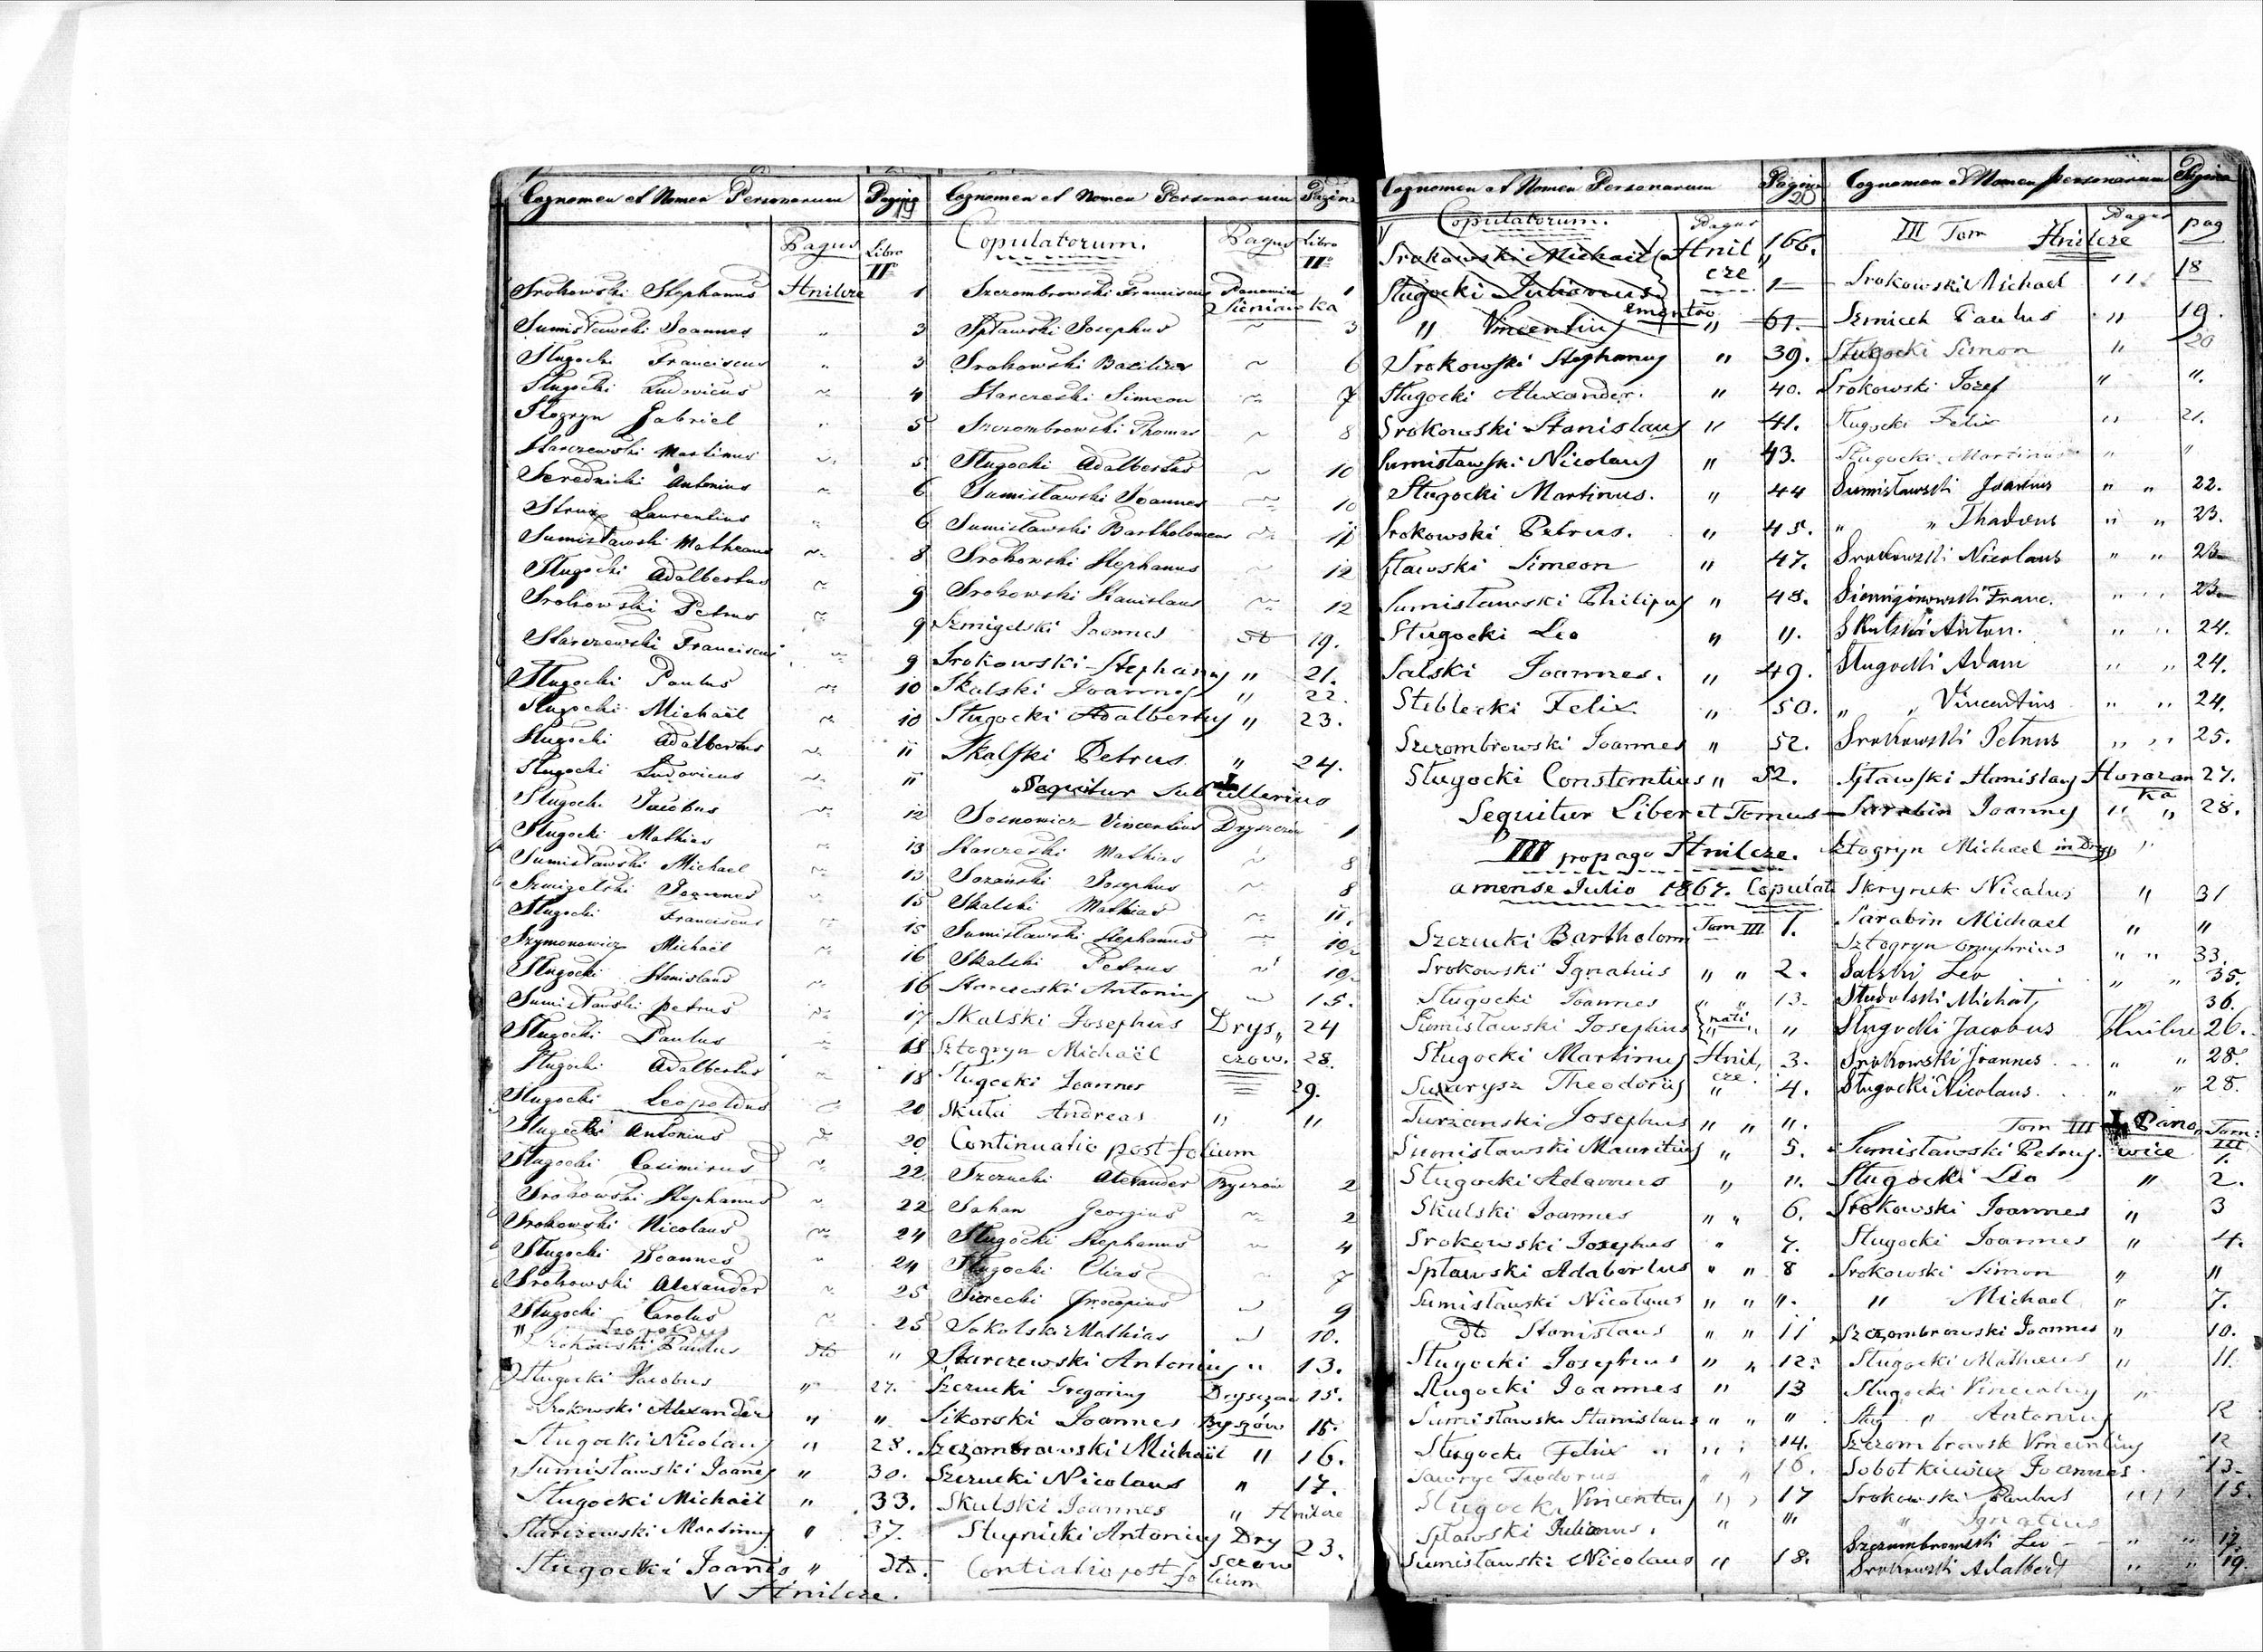 Cognomen et Nomen Personarum Pagina 19
Pagus Libro II
Srokowski Stephanus Hnilcze 1
Sumisławski Joannes " 3
Sługocki Franciscus " 3
Sługocki Ludovicus ~ 4
Sztogryn Gabriel " 5
Starczewski Martinus ~ 5
Serednicki Antonius ~ 6
Laurentius ~ 6
Sumisławski Mathaeus ~ 8
Sługocki Adalbertus ~ 9
Srokowski Petrus ~ 9
Starczewski Franciscus ~ 9
Sługocki Paulus ~ 10
Sługocki Michaël ~ 10
Sługocki Adalbertus ~ 11
Sługocki Ludovicus ~ 11
Sługocki Jacobus ~ 12
Sługocki Mathias ~ 13
Sumisławski Michael ~ 13
Szmigelski Joannes ~ 15
Sługocki Franciscus ~ 15
Szymonowicz Michaël ~ 16
Sługocki Stanislaus ~ 16
Sumisławski Petrus ~ 17
Sługocki Paulus ~ 18
Sługocki Adalbertus ~ 18
Sługocki Leopoldus ~ 20
Sługocki Antonius ~ 20
Sługocki Casimirus ~ 22
Srokowski Stephanus ~ 22
Srokowski Nicolaus ~ 24
Sługocki Joannes ~ 24
Srokowski Alexander ~ 25
Sługocki Carolus ~ 25
" Leopoldus
Srokowski Paulus dto "
Sługocki Jacobus " 27.
Srokowski Alexander " "
Sługocki Nicolaus " 28.
Sumisławski Joanes " 30.
Sługocki Michaël " 33.
Starczewski Martinus " 37.
Sługocki Joanes " dto.
V Hnilcze.
Cognomen et Nomen Personarum Pagina
Copulatorum. Pagus Libro II
Szczombrowski Franciscus Panowice 1
Sieniawka
Spławski Josephus ~ 3
Srokowski Basilius ~ 6
Starczeski Simeon ~ 7
Szczombrowski Thomas ~ 8
Sługocki Adalbertus ~ 10
Sumisławski Joannes ~ 10
Sumisławski Bartholomeus ~ 11
Srokowski Stephanus ~ 12
Srokowski Stanislaus ~ 12
Szmigelski Joannes dto 19.
Srokowski Stephanus " 21.
Skalski Joannes " 22.
Sługocki Adalbertus " 23.
Skalski Petrus " 24.
Sequitur sub ulterius
Sosnowicz Vincentius Dryszczów 1
Starczeski Mathias ~ 8
Sozański Josephus ~ 8
Skalski Mathias ~ 11.
Sumisławski Stephanus ~
Skalski Petrus ~
Starczeski Antonius ~ 15.
Skalski Josephus Drys„ 24
Sztogryn Michaël czow. 28.
Sługocki Joannes 29.
Skuła Andreas " "
Continuatio post folium
Szczucki Alexander Byszów 2
Sahan Georgius ~ 2
Sługocki Stephanus ~ 4
Sługocki Elias ~ 7
Procopius ~ 9
Sokolski Mathias ~ 10.
Starczewski Antonius " 13.
Szczucki Gregorius Dryszczow 15.
Sikorski Joannes Byszów 15.
Szczombrowski Michaël " 16.
Szczucki Nicolaus " 17.
Skulski Joannes " Hnilcze
Słupnicki Antonius Dry 23.
sczow
Contiatio post folium
Cognomen et Nomen Personarum Pagina 20
Copulatorum. Pagus
Srokowski Michaël Hnil 166.
cze
Sługocki Julianus 1
" Vincentius " 61.
Srokowski Stephanus " 39.
Sługocki Alexander. " 40.
Srokowski Stanislaus " 41.
Sumisławski Nicolaus " 43.
Sługocki Martinus. " 44
Srokowski Petrus. " 45.
Simeon " 47.
Sumisławski Philipus " 48.
Sługocki Leo " ".
Salski Joannes. " 49.
Steblecki Felix " 50.
Szczombrowski Joannes " 52.
Sługocki Constantius " 52.
Sequitur Liber et Tomus
III pro pago Hnilcze.
a mense Julio 1867. Copulat
Szczucki Bartholom Tom III 1.
Srokowski Ignatius " " 2.
Sługocki Joannes " " 13.
Sumisławski Josephus " "
Sługocki Martinus Hnil 3.
cze.
Theodorus " 4.
Turzanski Josephus " " ".
Sumisławski Mauritius " 5.
Sługocki Adamus " ".
Skulski Joannes " " 6.
Srokowski Josephus " 7.
Spławski Adabertus " " 8
Sumisławski Nicolaus " " ".
dto Stanislaus " " 11
Sługocki Josephus " " 12.
Sługocki Joannes " 13
Sumisławski Stanislaus " " "
Sługocki Felix " " 14.
Teodorus " " 16.
Sługocki Vincentius " 17
Spławski Julianus. " ".
Sumisławski Nicolaus " 18.
Cognomen et Nomen personarum Pagina
III Tom Pagus Hnilcze pag
Srokowski Michael " 18
Paulus " 19.
Sługocki Simon " 20
Srokowski Józef " ".
Sługocki Felix " 21.
Sługocki Martinus " "
Sumisławski Joannes " " 22.
" " Thadeus " " 23.
Srokowski Nicolaus " " 23.
Franc. " " 23.
Skulski Anton. " " 24.
Sługocki Adam " " 24.
" " Vincentius " " 24.
Srokowski Petrus " " 25.
Spławski Stanislaus Horozan 27.
ka
Sarabin Joannes " " 28.
Sztogryn Michael in Drys "
Nicolaus " 31
Sarabin Michael " "
Sztogryn Onuphrius " " 33.
Salski Leo " " 35.
Michał, " 36.
Sługocki Jacobus Hnilcze 26.
Srokowski Joannes " " 28.
Sługocki Nicolaus. " " 28.
Tom III Pano„ Tom: III
Sumisławski Petrus. wice 1.
Sługocki Leo " 2.
Srokowski Joannes " 3
Sługocki Joannes " 4.
Srokowski Simon " "
" Michael " 7.
Szczombrowski Joannes " 10.
Sługocki Matheus " 11.
Sługocki Vincentius "
Sług " Antonius 12
Szczombrowsk Vincentius 12
Sobotkiewicz Joannes. 13.
Srokowski Paulus " " 15.
" Ignatius
Szczombrowski Leo " " 17.
Srokowski Adalbert " " 19.